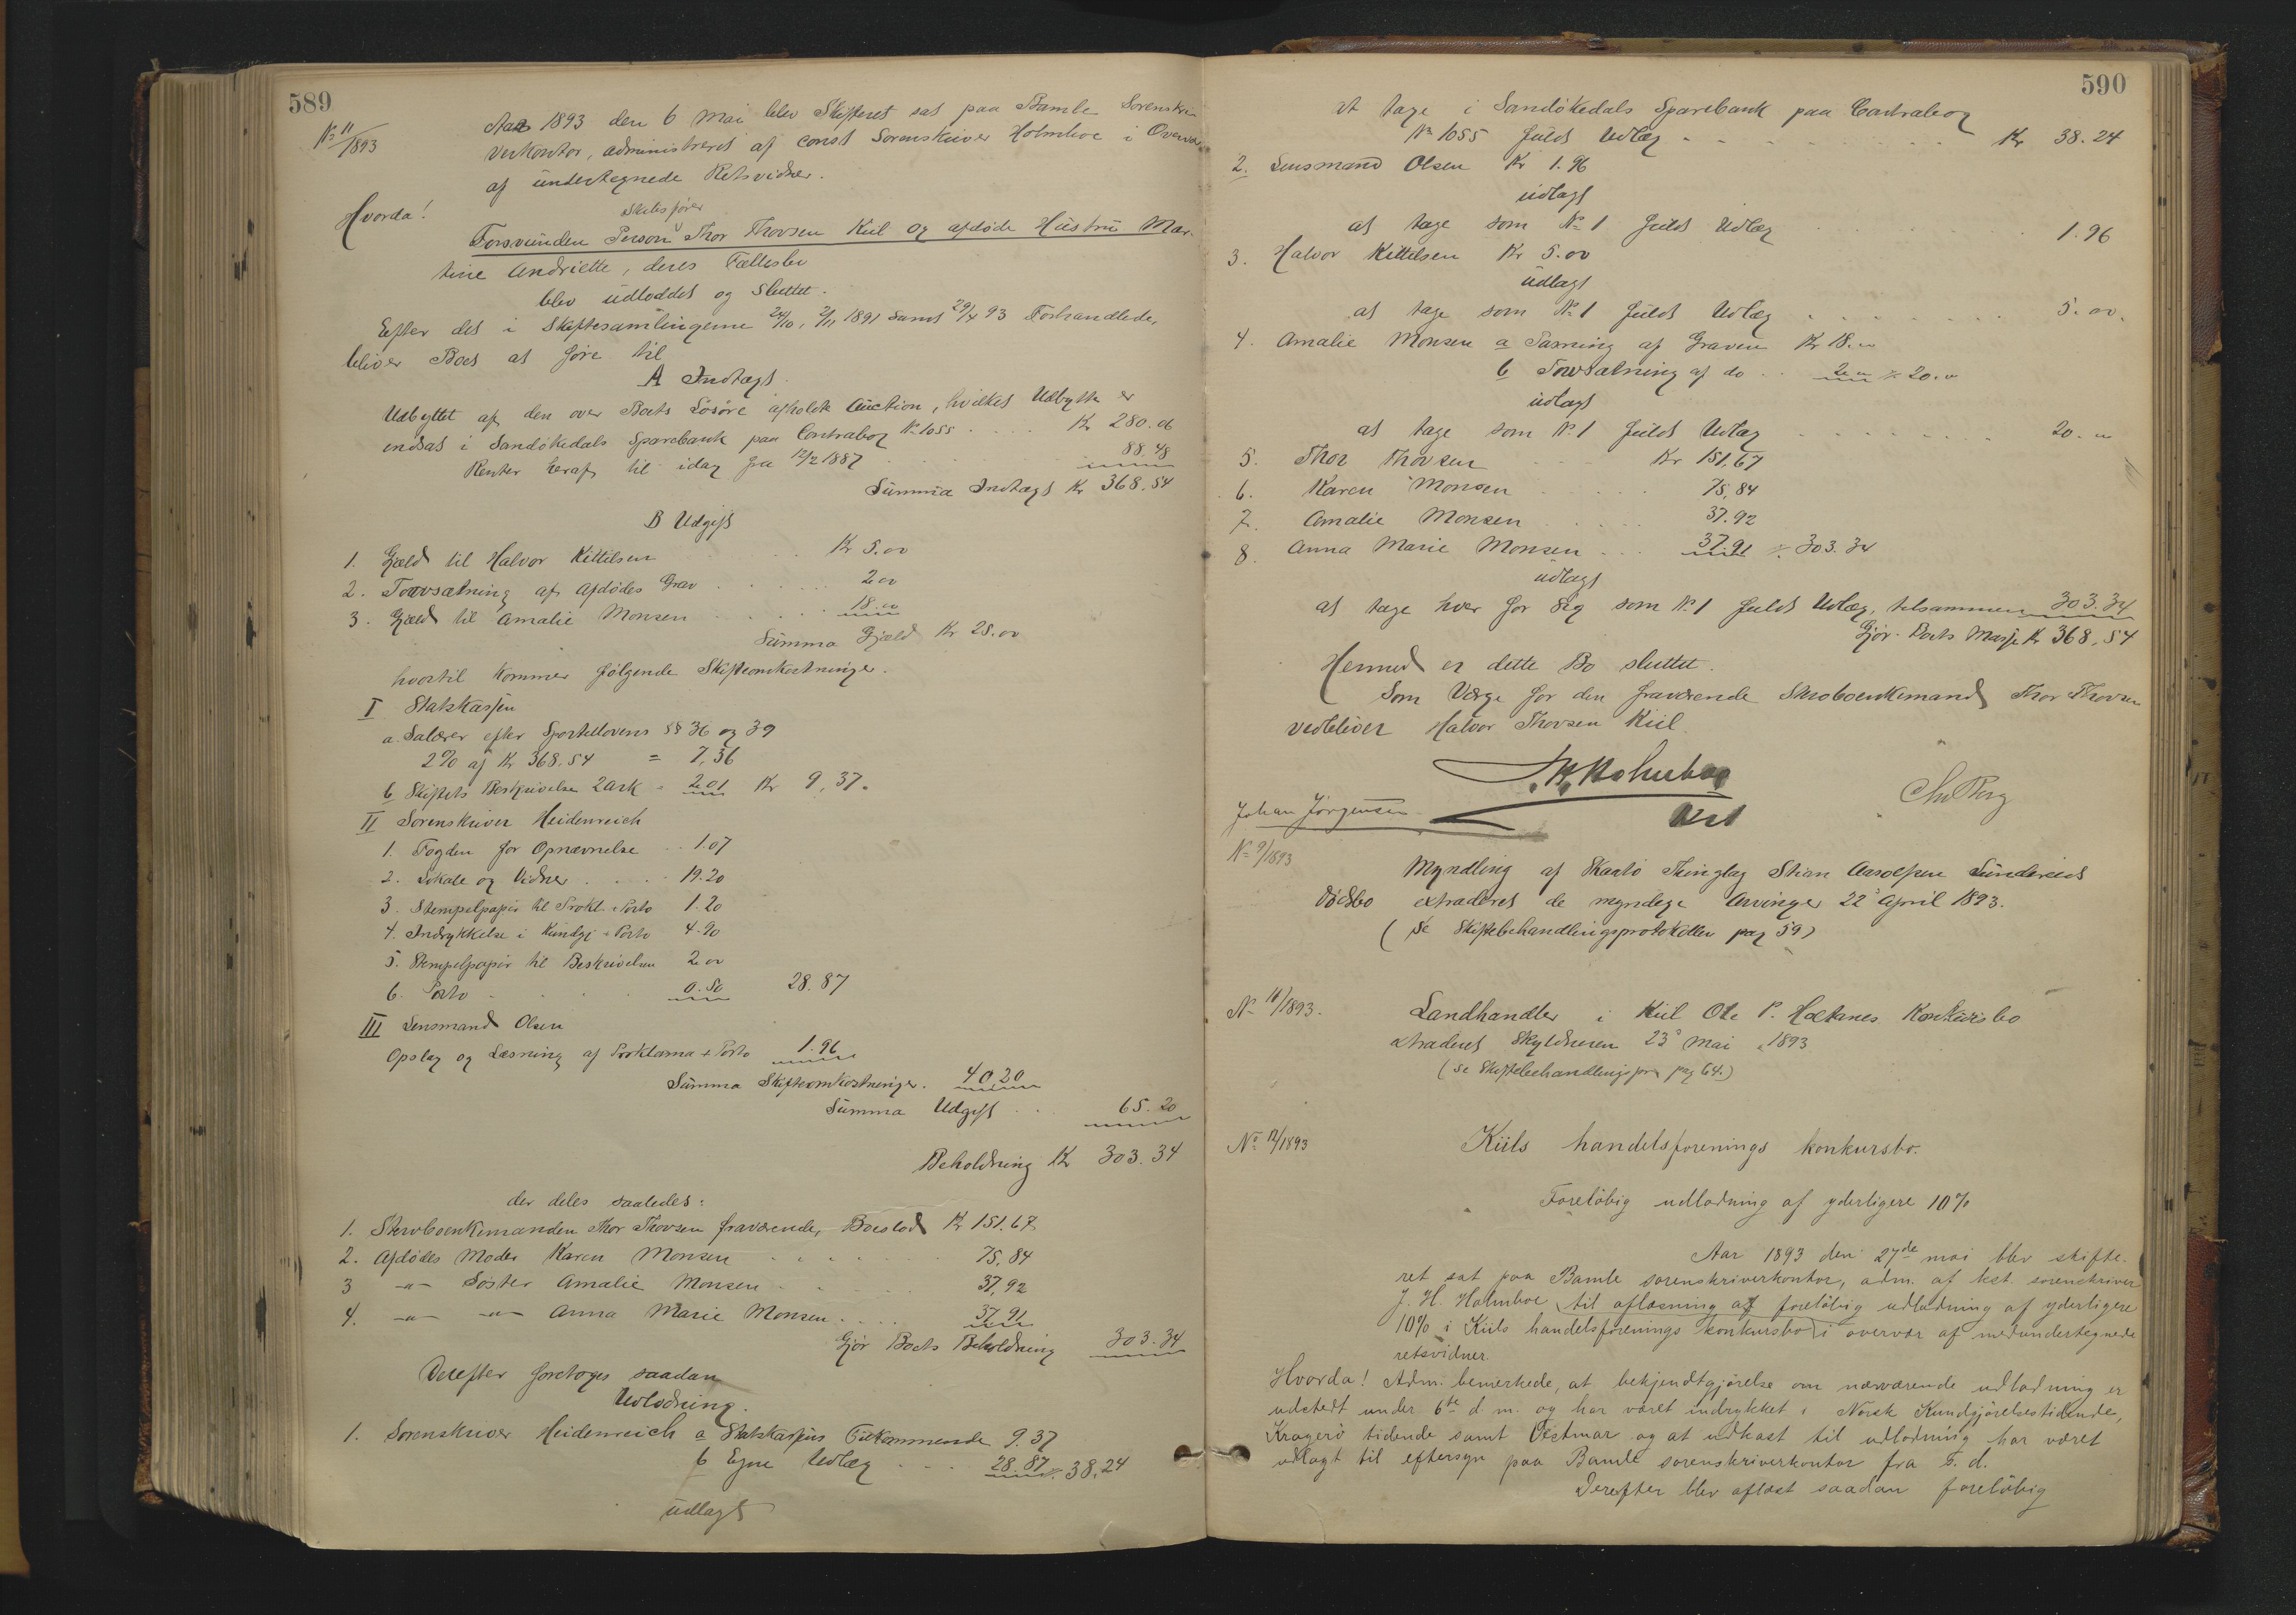 589
No 11/1893
Aar 1893 den 6 Mai blev Skifteret sat paa Bamle Sorenskri-
verkontor, administreret af const Sorenskriver Holmboe i Overvær
af undertegnede Retsvidner.
Hvorda!
Skibsfører
Forsvunden Person Thor Thorsen Kiil og afdøde Hustru Mar-
tine Andriette, deres Fællesbo
blev udloddet og sluttet.
Efter det i Skiftesamlingerne 24/10, 2/11 1891 samt 29/4 93 Forhandlede,
bliver Boet at føre til
A Indtægt.
Udbyttet af den over Boets Løsøre afholdte Auction, hvilket Udbytte er
indsat i Sandøkedals Sparebank paa Contrabog No 1055 .... Kr 280.06
Renter heraf til idag fra 12/2 1887 88.48
Summa Indtægt Kr 368.54
B Udgift
1. Gjæld til Halvor Kittilsen .. Kr 5.00
2. Torvsætning af Afdødes Grav .... 2.00
3. Gjæld til Amalie Monsen .... 18.00
Summa Gjæld Kr 25.00
hvortil kommer følgende Skifteomkostninger.
I Statskassen
a. Salærer efter Sportellovens §§ 36 og 39
2% af Kr 368.54 = 7,36
b Skiftets Beskrivelse 2 Ark = 2.01 Kr 9,37.
II Sorenskriver Heidenreich
1. Fogden for Opnævnelse .. 1.07
2. Lokale og Vidner .... 19.20
3. Stempelpapir til Prokl. + Porto 1.20
4. Indrykkelse i Kundgj + Porto 4.90
5. Stempelpapir til Beskrivelsen 2.00
6. Porto . . . 0.50 28.87
III Lensmand Olsen
Opslag og Læsning af Proklama + Porto 1.96
Summa Skifteomkostninger. 40,20
Summa Udgift .. 65.20
Beholdning Kr 303.34
der deles saaledes:
1. Skervboenkemanden Thor Thorsen fraværende, Boeslod Kr 151.67
2. Afdødes Moder Karen Monsen .... 75,84
3 -"- Søster Amalie Monsen .... 37,92
4. -"- -"- Anna Marie Monsen .... 37.91
Gjør Boets Beholdning 303.34
Derefter foretoges saadan
Udlodning.
1. Sorenskriver Heidenreich a Statskassens Tilkommende 9.37
b Egne Udlæg .... 28.87 = 38,24
udlagt
590
at tage i Sandøkedals Sparebank paa Contrabog
No 1055 fuldt Udlæg ........ Kr 38.24
2. Lensmand Olsen Kr 1.96
udlagt
at tage som No 1 fuldt Udlæg ..... 1.96
3. Halvor Kittilsen Kr 5.00
udlagt
at tage som No 1 fuldt Udlæg ........ 5.00.
4. Amalie Monsen a Pasning af Graven Kr 18.00
b Torvsætning af do .. 2.00 = 20.00
udlagt
at tage som No 1 fuldt Udlæg ........ 20.00
5. Thor Thorsen .... Kr 151,67
6. Karen Monsen ..... 75,84
7. Amalie Monsen ..... 37.92
8. Anna Marie Monsen ... 37.91 = 303.34
udlagt
at tage hver for sig som No 1 fuldt Udlæg, tilsammen 303.34
Gjør Boets Masse Kr 368,54
Hermed er dette Bo sluttet.
Som Værge for den fraværende Skervboenkemand Thor Thorsen
vedbliver Halvor Thorsen Kiil.
J. H. Holmboe
Kst
Johan Jörgensen
Chr Berg
No 9/1893
Myndling af Skaatø Thinglag Stian Aasolfsen Sundereds
Dødsbo extraderet de myndige Arvinger 22de April 1893.
(Se Skiftebehandlingsprotokollen pag 59)
No 10/1893.
Landhandler i Kiil Ole P. Hæstnes Konkursbo
extraderet Skyldneren 23de Mai 1893
(Se Skiftebehandlingspr pag 64.)
No 12/1893
Kiils handelsforenings konkursbo.
Foreløbig udlodning af yderligere 10%
Aar 1893 den 27de mai blev skifte-
ret sat paa Bamle sorenskriverkontor, adm. af kst. sorenskriver
J. H. Holmboe til aflæsning af foreløbig udlodning af yderligere
10% i Kiils handelsforenings konkursbo i overvær af medundertegnede
retsvidner.
Hvorda! Adm. bemerkede, at bekjendtgjørelse om nærværende udlodning er
udstedt under 6te d m. og har været indrykket i Norsk Kundgjørelsestidende,
Kragerø tidende samt Vestmar og at udkast til udlodning har været
udlagt til eftersyn paa Bamle sorenskriverkontor fra s. d.
Derefter blev aflæst saadan foreløbig